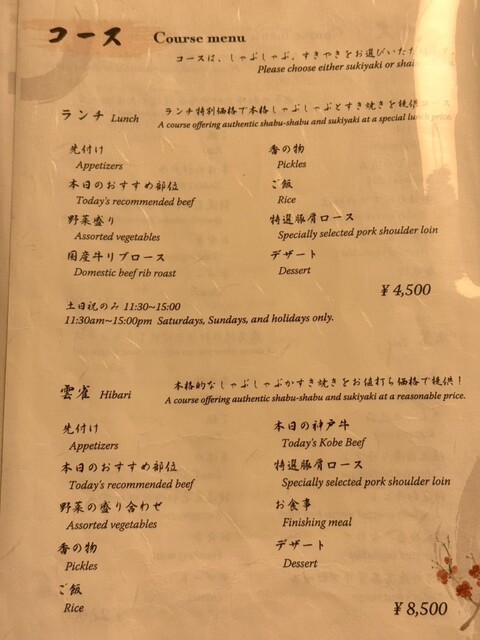 コース Course menu
コースは、しゃぶしゃぶ、すきやきをお選びいただ
Please choose either sukiyaki or
ランチ Lunch
ランチ特別価格で本格しゃぶしゃぶとすき焼きを提供コース
A course offering authentic shabu-shabu and sukiyaki at a special lunch price.
先付け
Appetizers
本日のおすすめ部位
Today's recommended beef
野菜盛り
Assorted vegetables
国産牛リブロース
Domestic beef rib roast
香の物
Pickles
ご飯
Rice
特選豚肩ロース
Specially selected pork shoulder loin
デザート
Dessert
¥4,500
土日祝のみ 11:30~15:00
11:30am~15:00pm Saturdays, Sundays, and holidays only.
雲雀 Hibari
本格的なしゃぶしゃぶかすき焼きをお値打ち価格で提供！
A course offering authentic shabu-shabu and sukiyaki at a reasonable price.
先付け
Appetizers
本日のおすすめ部位
Today's recommended beef
野菜の盛り合わせ
Assorted vegetables
香の物
Pickles
ご飯
Rice
本日の神戸牛
Today's Kobe Beef
特選豚肩ロース
Specially selected pork shoulder loin
お食事
Finishing meal
デザート
Dessert
¥8,500